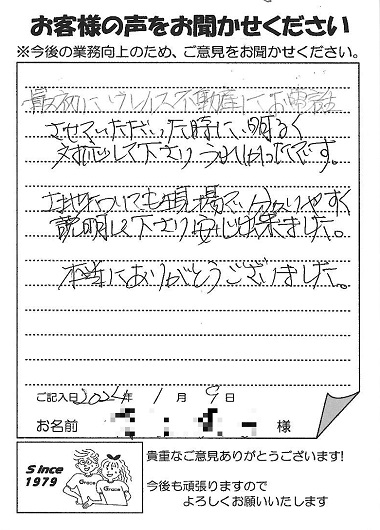 お客様の声をお聞かせください
※今後の業務向上のため、ご意見をお聞かせください。
最初にウレノス不動産にお電話
させていただいた時に、明るく
対応して下さりうれしかったです。
土地についても現場で、分かりやすく
説明して下さり安心出来ました。
本当にありがとうございました。
ご記入日2024年 1月 9日
お名前 様
Since
1979
Grace
Grace
貴重なご意見ありがとうございます!
今後も頑張りますので
よろしくお願いいたします